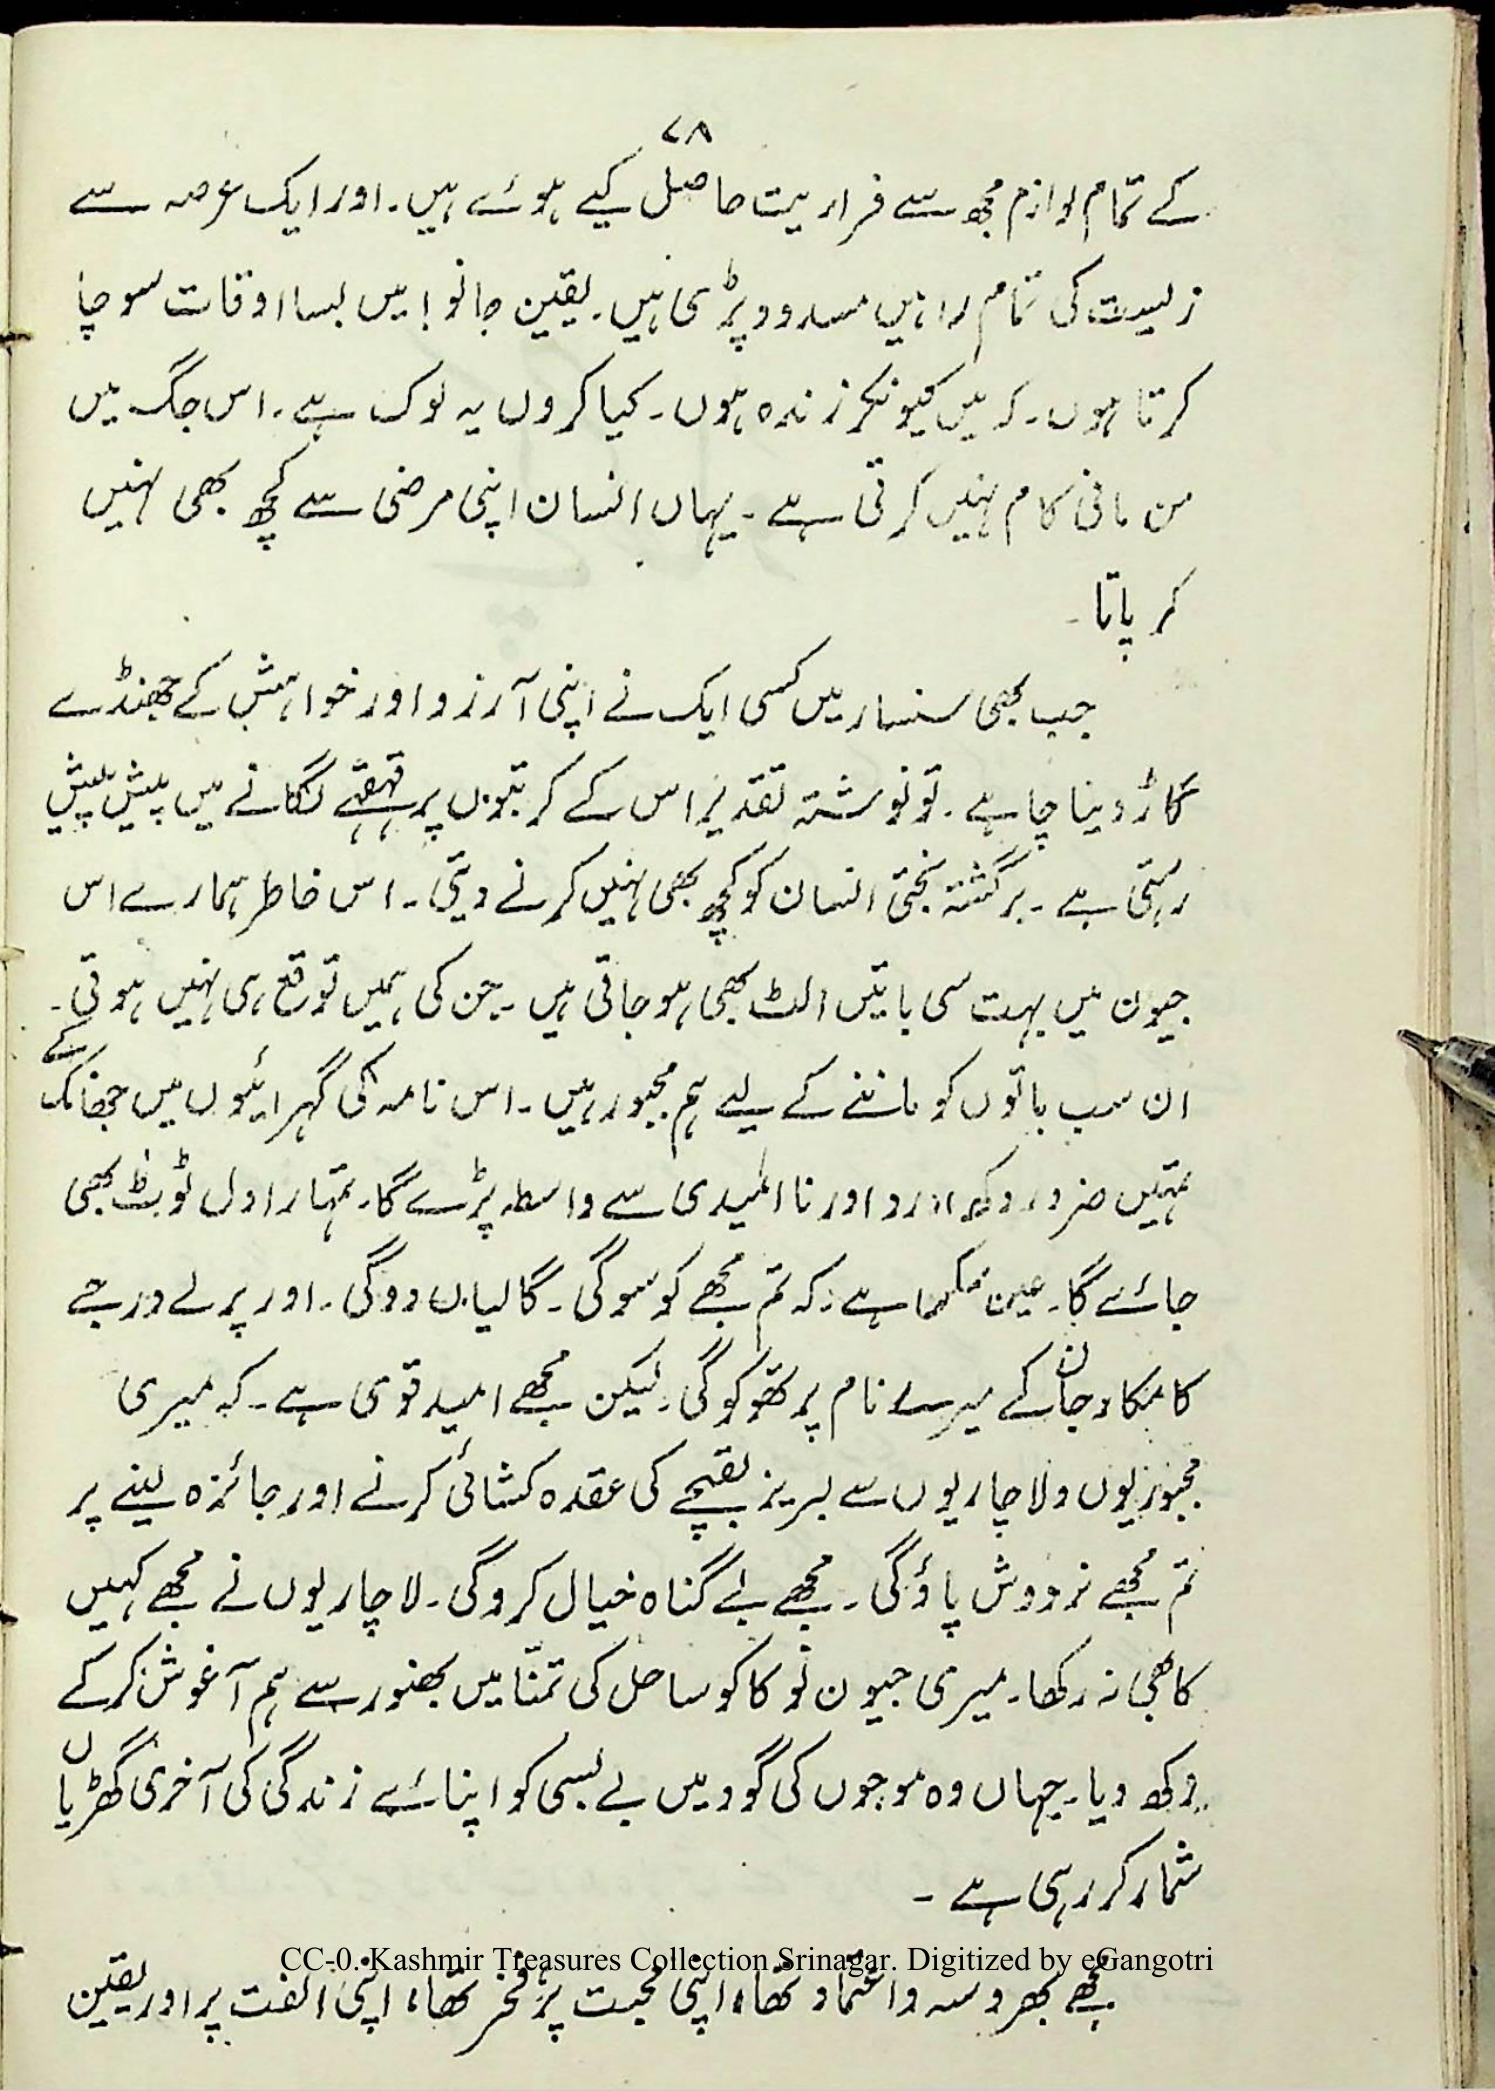 ۷۸
کے تمام لوازم مجھ سے فراریت حاصل کیے ہوئے ہیں۔ اور ایک عرصہ سے
زلیست کی تمام راہیں مسدود پڑی ہیں۔ یقین جانو! میں بسا اوقات سوچا
کرتا ہوں۔ کہ میں کیونکر زندہ ہوں۔ کیا کروں یہ لوک ہے۔ اس جگ میں
من مانی کام نہیں کرتی ہے۔ یہاں انسان اپنی مرضی سے کچھ بھی نہیں
کر پاتا۔
جب بھی سنسار میں کسی ایک نے اپنی آرزو اور خواہش کے جھنڈے
گاڑ دینا چاہے۔ تو نوشتہ تقدیر اس کے کرتبوں پر قہقہے لگانے میں پیش پیش
رہتی ہے۔ برگشتہ بختی انسان کو کچھ بھی نہیں کرنے دیتی۔ اس خاطر ہمارے اس
جیون میں بہت سی باتیں الٹ بھی ہو جاتی ہیں۔ جن کی ہمیں توقع ہی نہیں ہوتی۔
ان سب باتوں کو ماننے کے لیے ہم مجبور ہیں۔ اس نامہ کی گہرائیوں میں جھانک کے
تمہیں ضرور دکھ درد اور نا امیدی سے واسطہ پڑے گا۔ تمہارا دل ٹوٹ بھی
جائے گا۔ عین ہے۔ کہ تم مجھے کوسو گی۔ گالیاں دو گی۔ اور پرلے درجے
کا مکار جان کے میرے نام پر تھوکو گی۔ لیکن مجھے امید قوی ہے۔ کہ میری
مجبوریوں ولاچاریوں سے لبریز بقچے کی عقدہ کشائی کرنے اور جائزہ لینے پر
تم مجھے نردوش پاؤ گی۔ مجھے بے گناہ خیال کرو گی۔ لاچاریوں نے مجھے کہیں
کا بھی نہ رکھا۔ میری جیون نوکا کو ساحل کی تمنّا میں بھنور سے ہم آغوش کر کے
رکھ دیا۔ جہاں وہ موجوں کی گود میں بے بسی کو اپنائے زندگی کی آخری گھڑیاں
شمار کر رہی ہے۔
مجھے بھروسہ واعتماد تھا، اپنی محبت پر، فخر تھا، اپنی الفت پر اور یقین
CC-0. Kashmir Treasures Collection Srinagar. Digitized by eGangotri